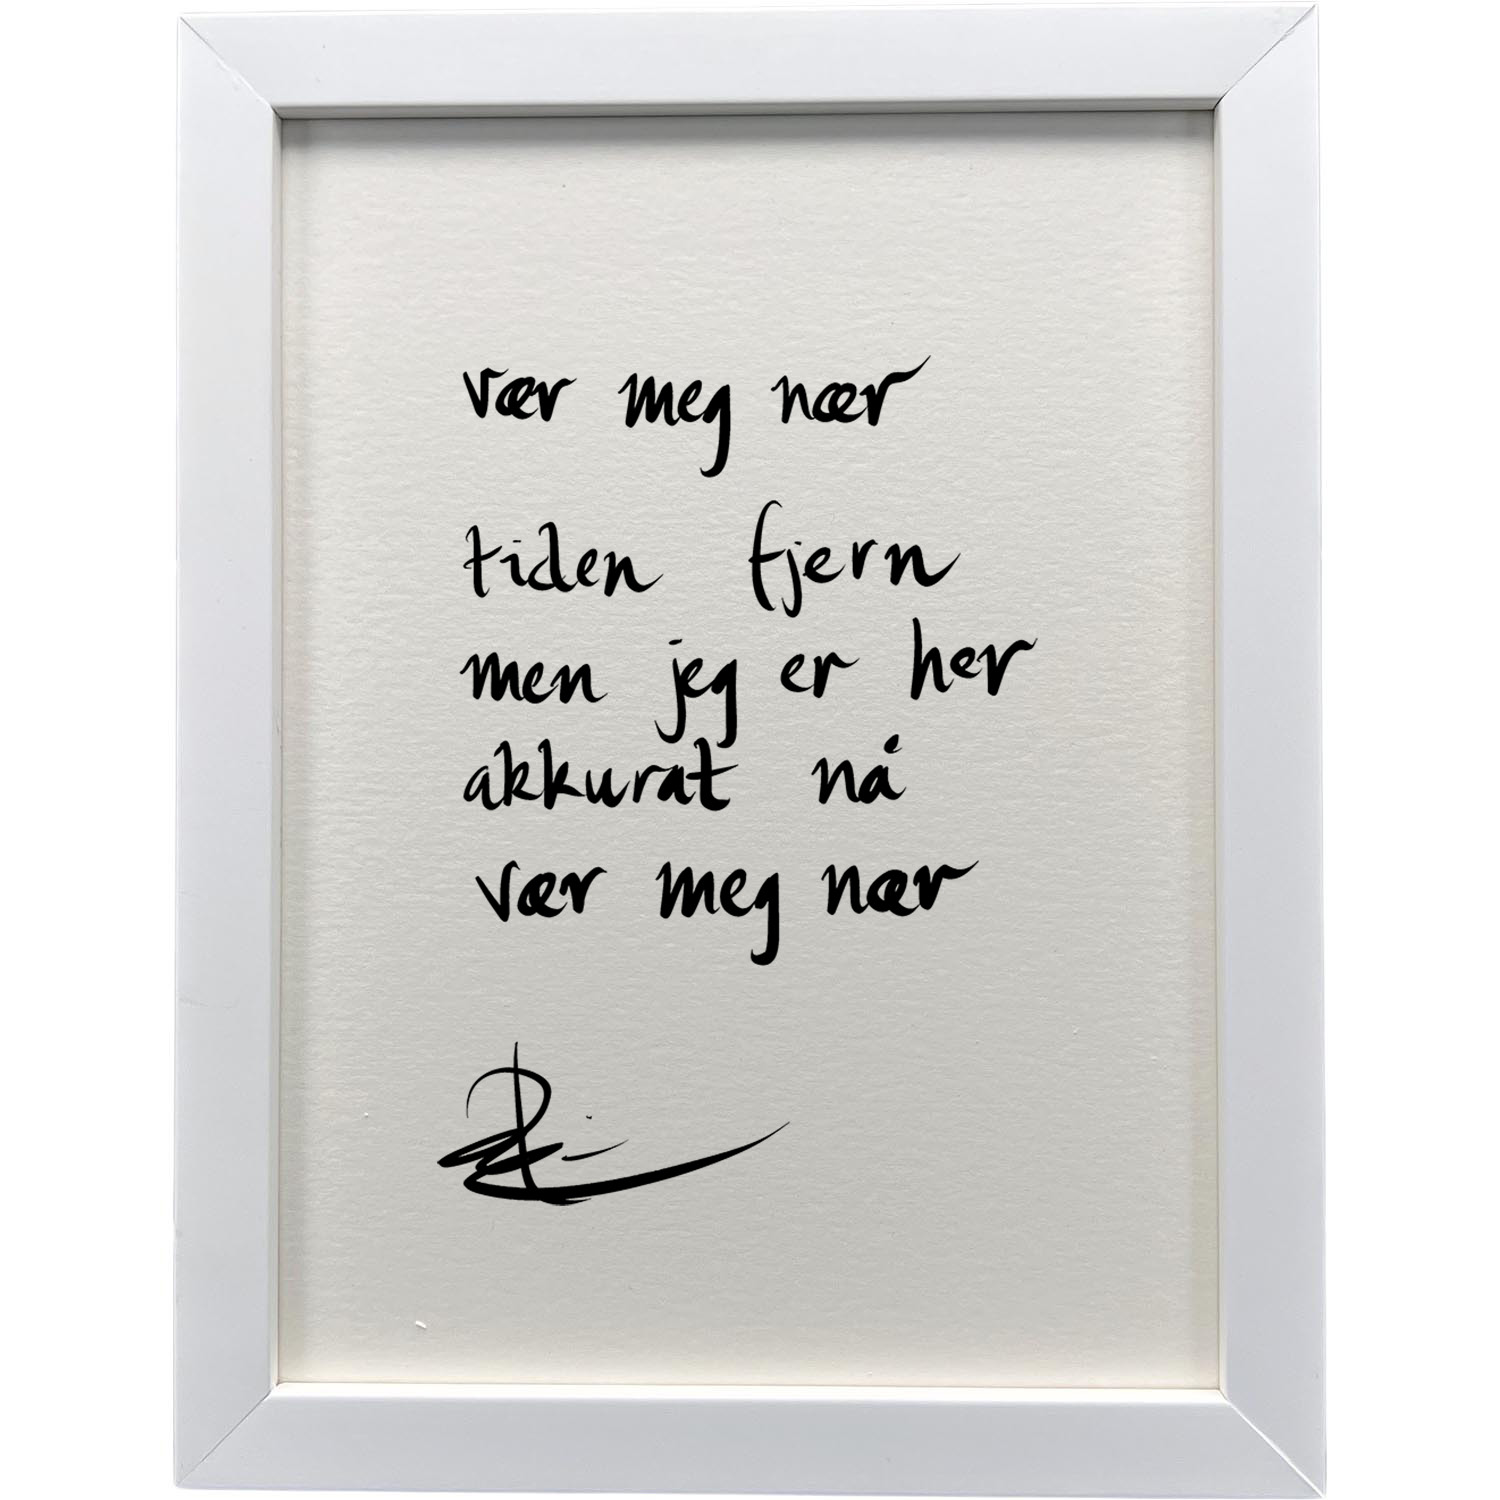 vær meg nær
tiden fjern
men jeg er her
akkurat nå
vær meg nær